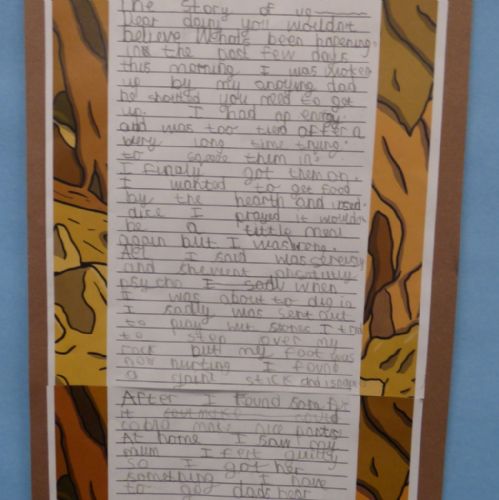 The Story of us
Dear dairy you wouldn't
believe Whats been hapening
in the past few days
this morning I was woken
up by my anoying dad
he shouted you need to get
up. I had no energy
and was too tied after a
very long time trying
to sqeeze them in
I finaly got them on.
I wanted to get food
by the hearth and
I prayed it wouldn
be a little meal
again but I was wrong.
All I said was
and she went absolutly
psycho I sadly when
I was about to dig in
I sadly was sent out
to play with stones I tried
to step over my
rock but my foot was
now hurting I found
a stick and
After I found
it could
could make nice pants
At home I saw my
mum I felt guilty
so I got her
something I have
to go dads hear